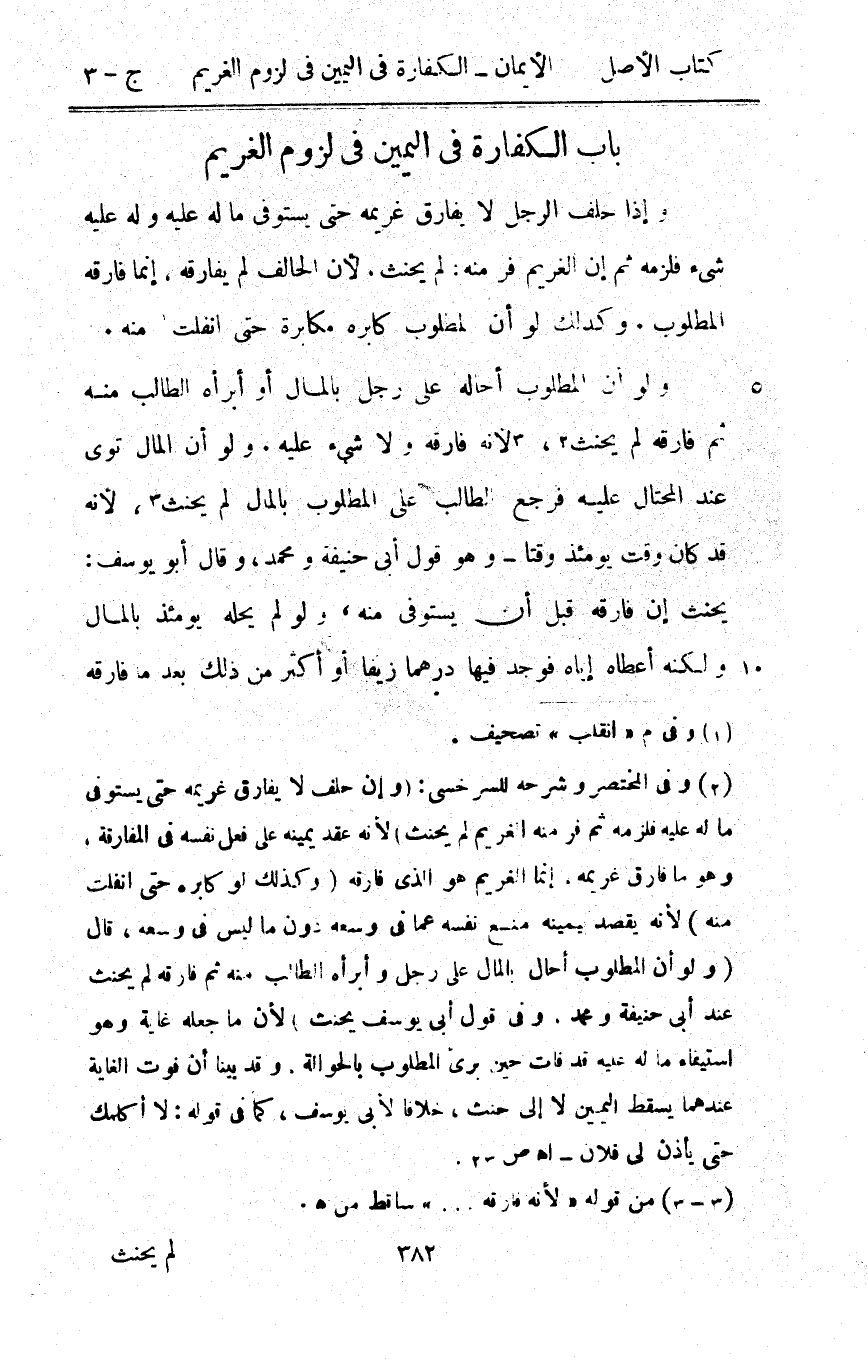 كتاب الأصل الأيمان ــ الكفارة فى اليمين فى لزوم الغريم ج – ٣
باب الكفارة فى اليمين فى لزوم الغريم
و إذا حلف الرجل لا يفارق غريمه حتى يستوفى ما له عليه و له عليه
شىء فلزمه ثم إن الغريم فر منه : لم يحنث . لأن الحالف لم يفارقه ، إنما فارقه
المطلوب . و كذلك لو أن المطلوب كابره مكابرة حتى انفلت ١ منه .
٥ و لو أن المطلوب أحاله على رجل بالمال أو أبرأه الطالب منه
ثم فارقه لم يحنث٢ ، ٣لأنه فارقه و لا شىء عليه . و لو أن المال توى
عند المحتال عليه فرجع الطالب على المطلوب بالمال لم يحنث٣ ، لأنه
قد كان وقت يومئذ وقتا ــ و هو قول أبى حنيفة و محمد ، و قال أبو يوسف :
يحنث إن فارقه قبل أن يستوفى منه ، و لو لم يحله يومئذ بالمال
١٠ و لكنه أعطاه إياه فوجد فيها درهما زيفا أو أكثر من ذلك بعد ما فارقه
(١) و فى م « انقلب » تصحيف .
(٢) و فى المختصر و شرحه للسرخسى : (و إن حلف لا يفارق غريمه حتى يستوفى
ما له عليه فلزمه ثم فر منه الغريم لم يحنث) لأنه عقد يمينه على فعل نفسه فى المفارقة ،
و هو ما فارق غريمه . إنما الغريم هو الذى فارقه ( وكذلك لو كابره حتى انفلت
منه ) لأنه يقصد بيمينه منع نفسه عما فى وسعه دون ما ليس فى وسعه ، قال
( و لو أن المطلوب أحال بالمال على رجل و أبرأه الطالب منه ثم فارقه لم يحنث
عند أبى حنيفة و محمد . و فى قول أبى يوسف يحنث ) لأن ما جعله غاية و هو
استيفاء ما له عليه قد فات حين برئ المطلوب بالحوالة . و قد بينا أن فوت الغاية
عندهما يسقط اليمين لا إلى حنث ، خلافا لأبى يوسف ، كما فى قوله : لا أكلمك
حتى يأذن لى فلان ــ اه ص ٢٣ .
(٣ ــ ٣) من قوله « لأنه فارقه ... » ساقط من ه .
٣٨٢ لم يحنث